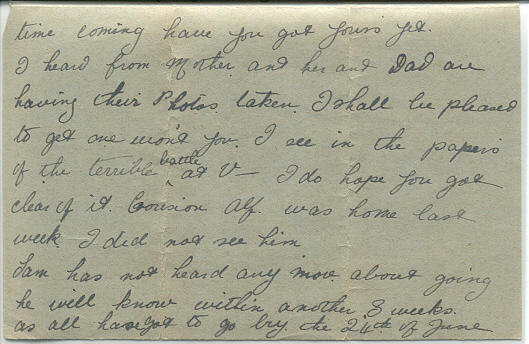 time coming have you got yours yet.
I heard from Mother and her and Dad are
having their Photos taken. I shall be pleased
to get one won't you. I see in the papers
of the terrible battle at V— I do hope you got
clear of it. Cousion Alf. was home last
week I did not see him
Sam has not heard any more about going
he will know within another 3 weeks.
as all have got to go by. the 24th of June